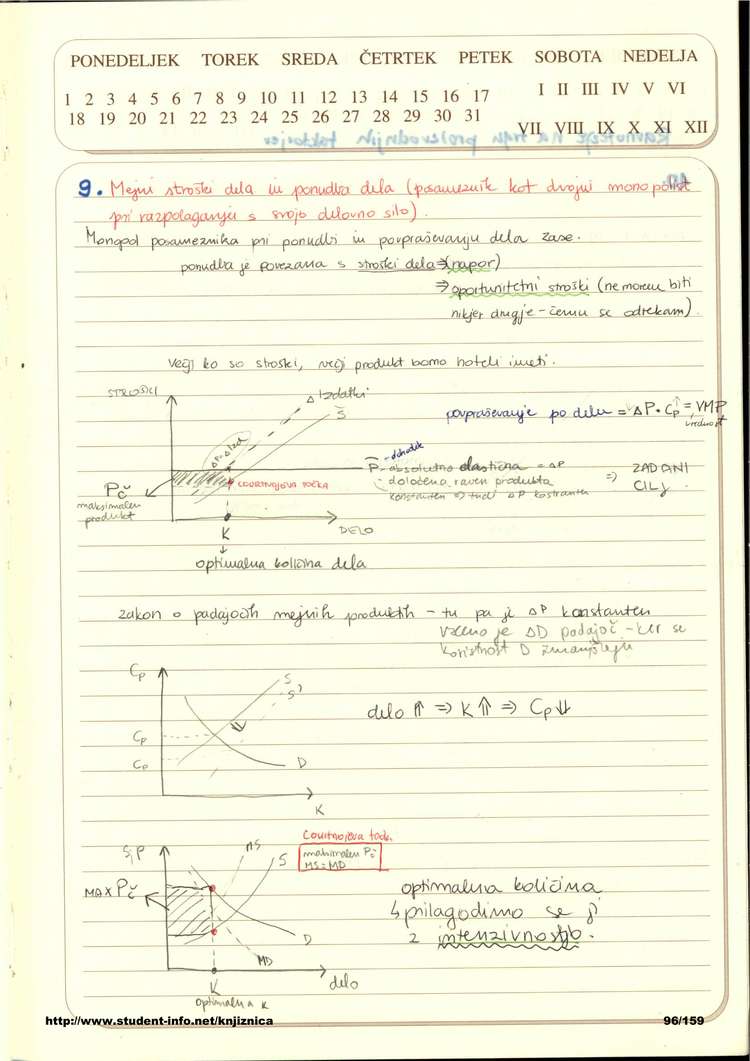 PONEDELJEK TOREK SREDA ČETRTEK PETEK SOBOTA NEDELJA
1 2 3 4 5 6 7 8 9 10 11 12 13 14 15 16 17
I II III IV V VI
18 19 20 21 22 23 24 25 26 27 28 29 30 31
VII VIII IX X XI XII
9. Mejni stroški dela in ponudba dela (posameznik kot dvojni monopolist
pri razpolaganju s svojo delovno silo).
Monopol posameznika pri ponudbi in povpraševanju dela zase.
ponudba je povezana s stroški dela ⇒ (napor)
⇒ oportunitetni stroški (ne morem biti
nikjer drugje - čemu se odrekam)
Večji ko so stroški, večji produkt bomo hoteli imeti.
STROŠKI
Δ Izdatki
S
povpraševanje po delu = ΔP · Cp↑ = VMP
vrednost
- dohodek
P - absolutno elastična = ΔP
- določena raven produkta
konstanten ⇒ tudi ΔP konstanten
⇒ ZADANI
CILJ
COURTNOJEVA TOČKA
Pč
maksimalen
produkt
K
DELO
optimalna količina dela
zakon o padajočih mejnih produktih - tu pa je ΔP konstanten
vzeno je ΔD padajoč - ker se
koristnost D zmanjšuje
Cp
S
S'
delo ⇑ ⇒ K ⇑ ⇒ Cp ⇓
Cp
Cp
D
K
Courtnojeva točk.
S,P
MS
S
maksimalen Pč
MS = MD
MAX Pč
optimalna količina
↳ prilagodimo se ji
z intenzivnostjo.
D
MD
K
delo
optimalna K
http://www.student-info.net/knjiznica
96/159